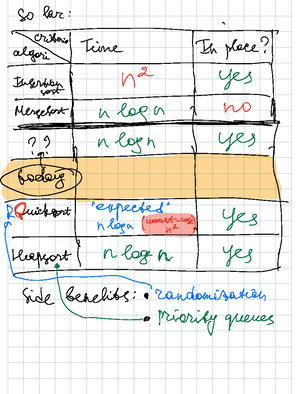 So far:
criteria
algori Time In place?
Insertion
sort n² yes
MergeSort n log n no
?? n log n yes
today
RQuicksort "expected"
n log n worst case n² yes
Heapsort n log n yes
Side benefits: • randomization
• priority queues